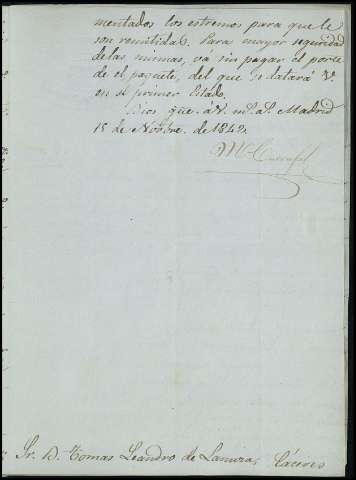 mentados los estremos para que le
son remitidas. Para mayor seguridad
de las mismas, va sin pagar el porte
de el paquete, del que se datará V.
en el primer Estado.
Dios gue. á V. m.s a.s Madrid
15 de Novbre. de 1842.
Sr. D. Tomas Leandro de Lamora, Cáceres